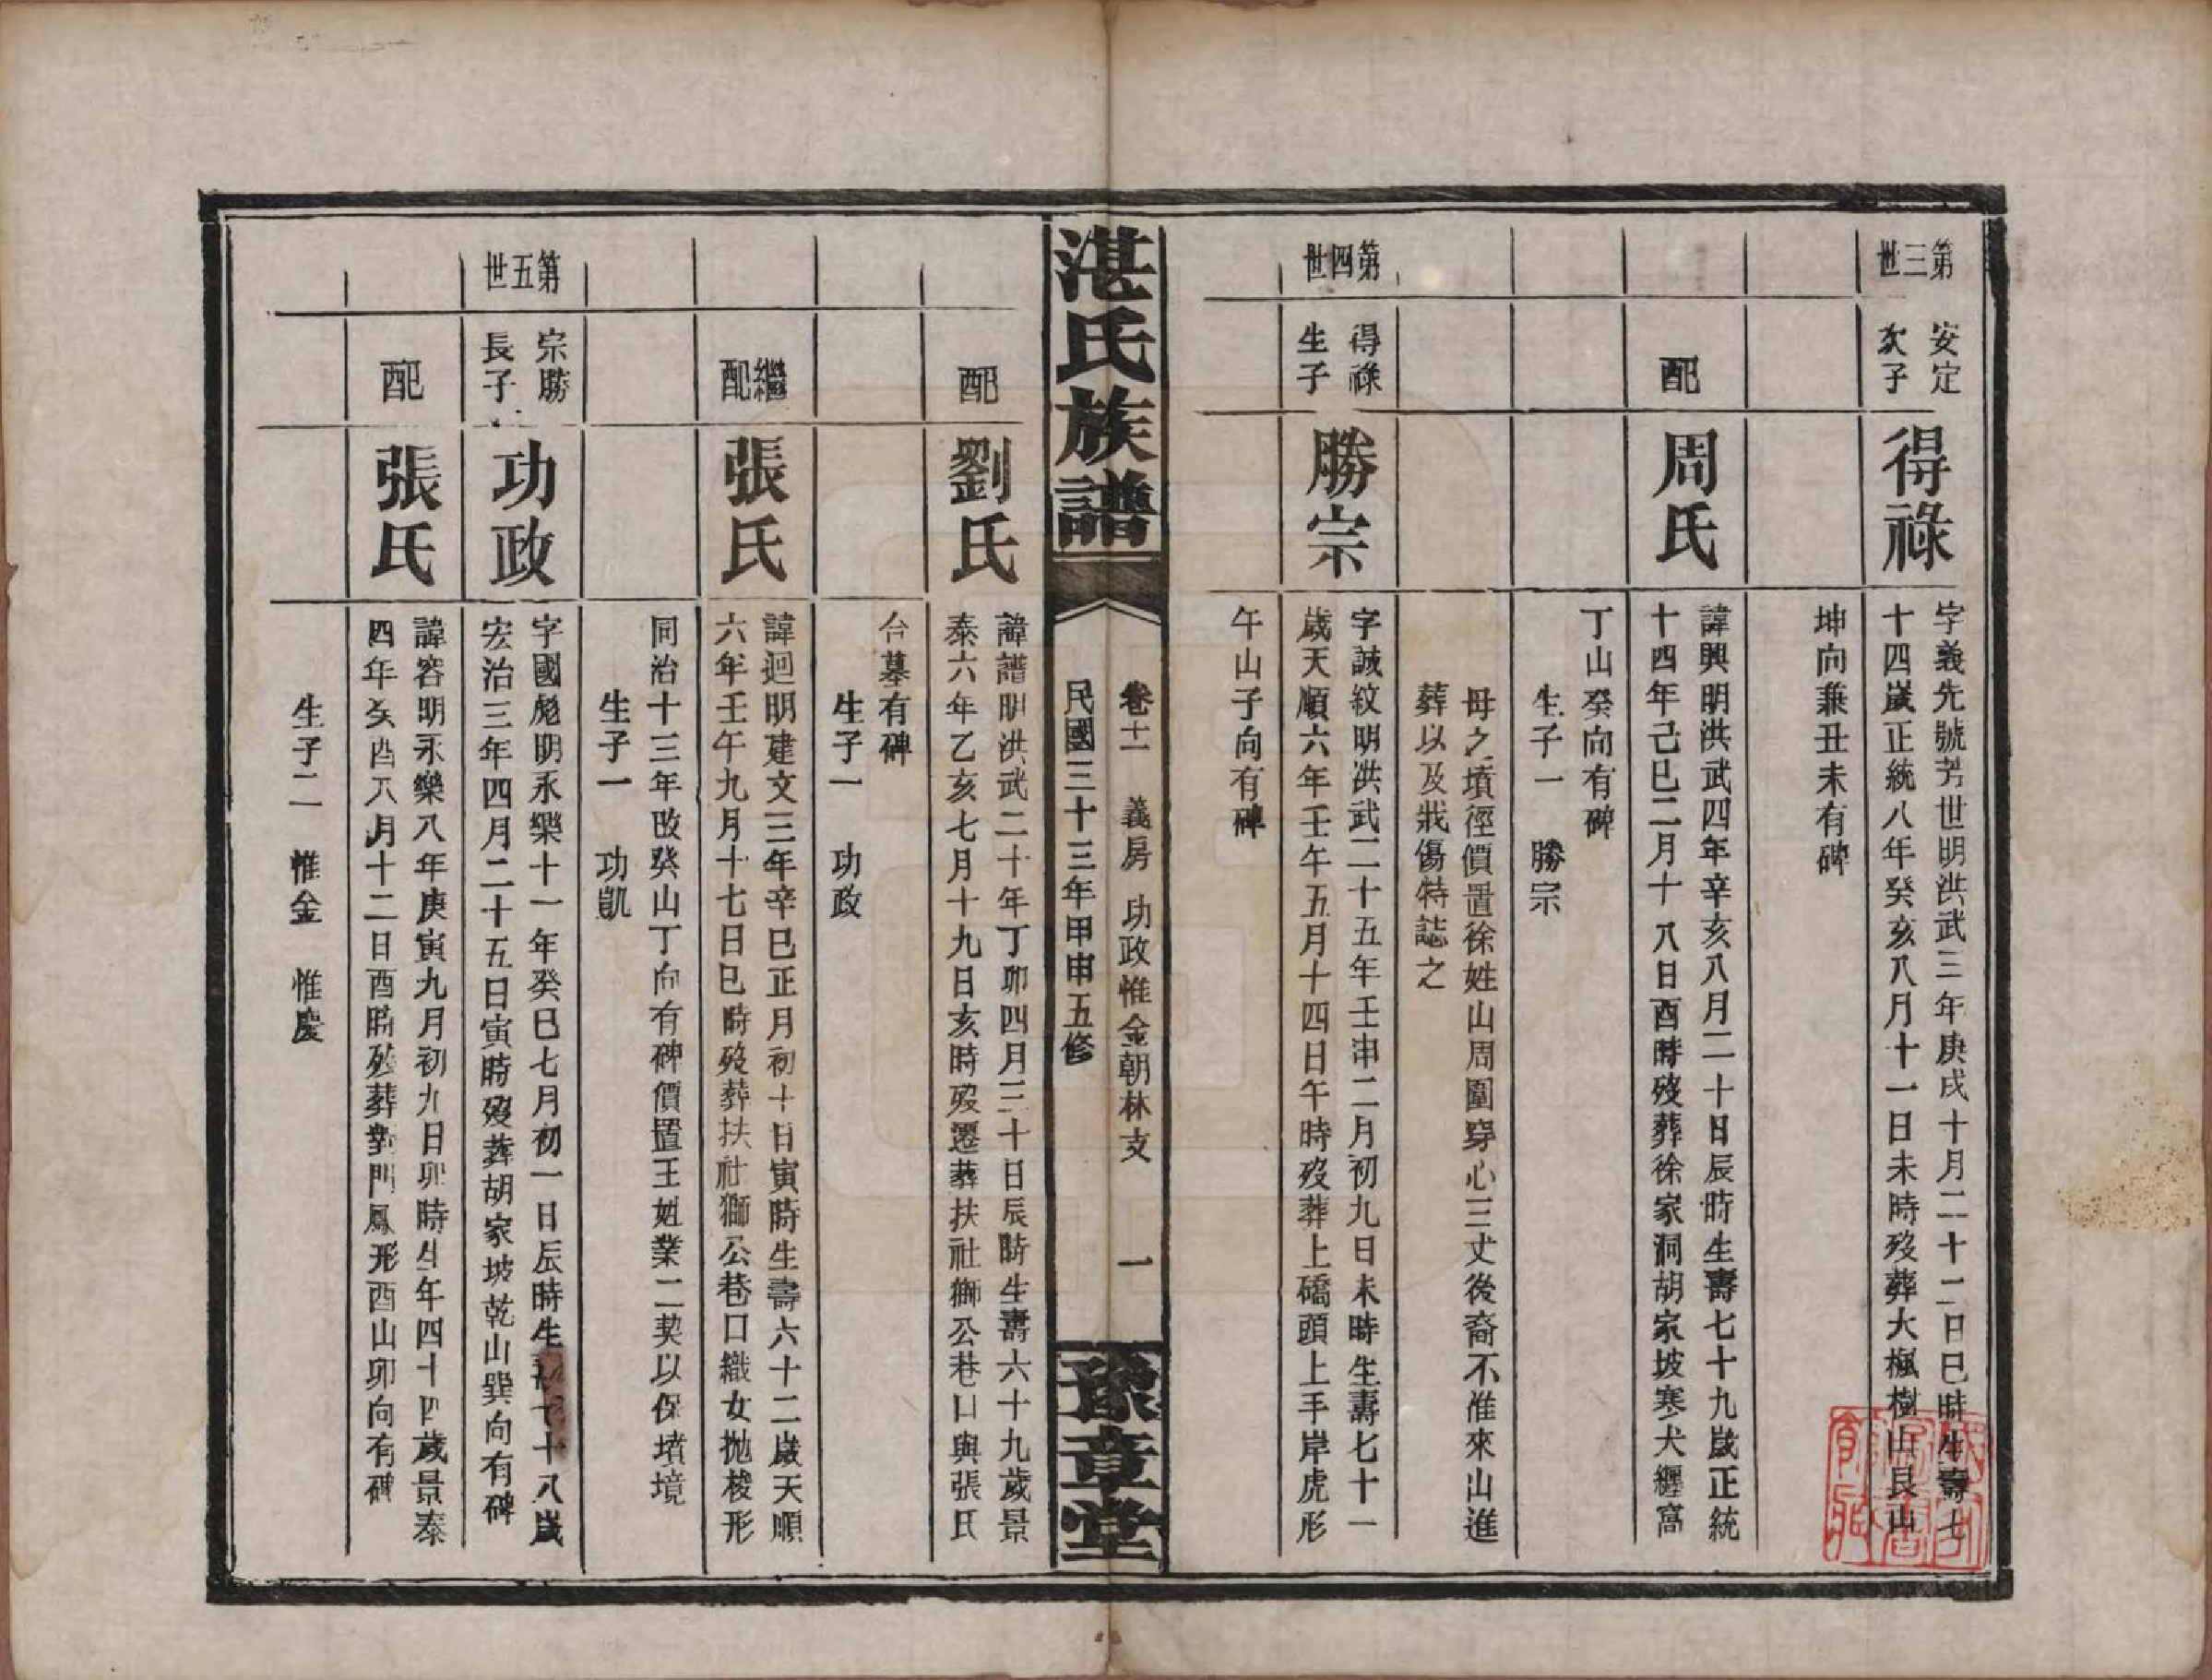 第三世
安定
次子
得祿
字義先號芳世明洪武三年庚戌十月二十二日巳時生壽七
十四歲正統八年癸亥八月十一日未時歿葬大楓樹山艮山
坤向兼丑未有碑
配
周氏
諱興明洪武四年辛亥八月二十日辰時生壽七十九歲正統
十四年己巳二月十八日酉時歿葬徐家洞胡家坡寒犬纒窩
丁山癸向有碑
生子一 勝宗
母之墳徑價置徐姓山周圍穿心三丈後裔不惟來山進
葬以及戕傷特誌之
第四世
得祿
生子
勝宗
字誠紋明洪武二十五年壬申二月初九日未時生壽七十一
歲天順六年壬午五月十四日午時歿葬上礄頭上手岸虎形
午山子向有碑
湛氏族譜
卷十一 義房 功政惟金朝林支 一
民國三十三年甲申五修
豫章堂
配
劉氏
諱譜明洪武二十年丁卯四月三十日辰時生壽六十九歲景
泰六年乙亥七月十九日亥時歿遷葬扶社獅公巷口與張氏
合墓有碑
生子一 功政
繼配
張氏
諱迴明建文三年辛巳正月初十日寅時生壽六十二歲天順
六年壬午九月十七日巳時歿葬扶社獅公巷口織女拋梭形
同治十三年改癸山丁向有碑價置王姓業二契以保墳境
生子一 功凱
第五世
宗勝
長子
功政
字國彪明永樂十一年癸巳七月初一日辰時生壽七十八歲
宏治三年四月二十五日寅時歿葬胡家坡乾山巽向有碑
配
張氏
諱容明永樂八年庚寅九月初九日卯時生年四十四歲景泰
四年癸酉八月十二日酉時歿葬對門鳳形酉山卯向有碑
生子二 惟金 惟慶